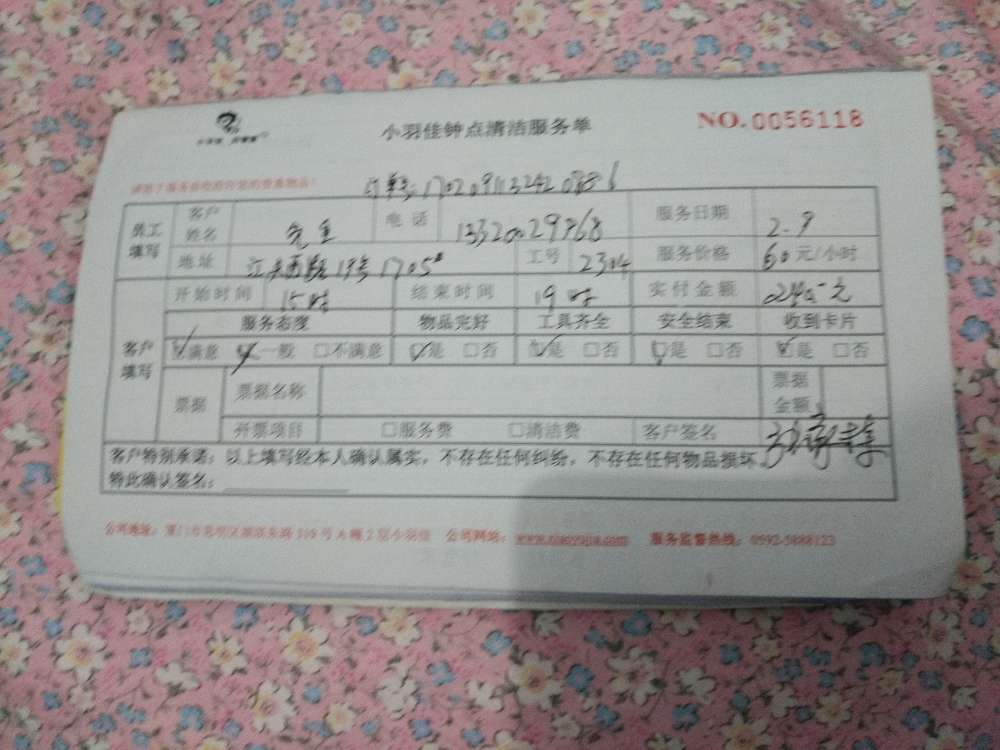 小羽佳钟点清洁服务单 NO.0056118
请您于服务前收检好您的贵重物品!
订单号:
员工填写 客户姓名 先生 电话 服务日期 2.9
地址 19号1705 工号 2304 服务价格 60元/小时
开始时间 15时 结束时间 19时 实付金额 240元
客户填写 服务态度 物品完好 工具齐全 安全结束 收到卡片
满意 一般 不满意 是 否 是 否 是 否 是 否
票据 票据名称 票据金额
开票项目 服务费 清洁费 客户签名
客户特别承诺:以上填写经本人确认属实,不存在任何纠纷,不存在任何物品损坏。
特此确认签名:
公司地址:厦门市思明区 号 2层小羽佳 公司网站:www.xiaoyujia.com 服务监督热线: